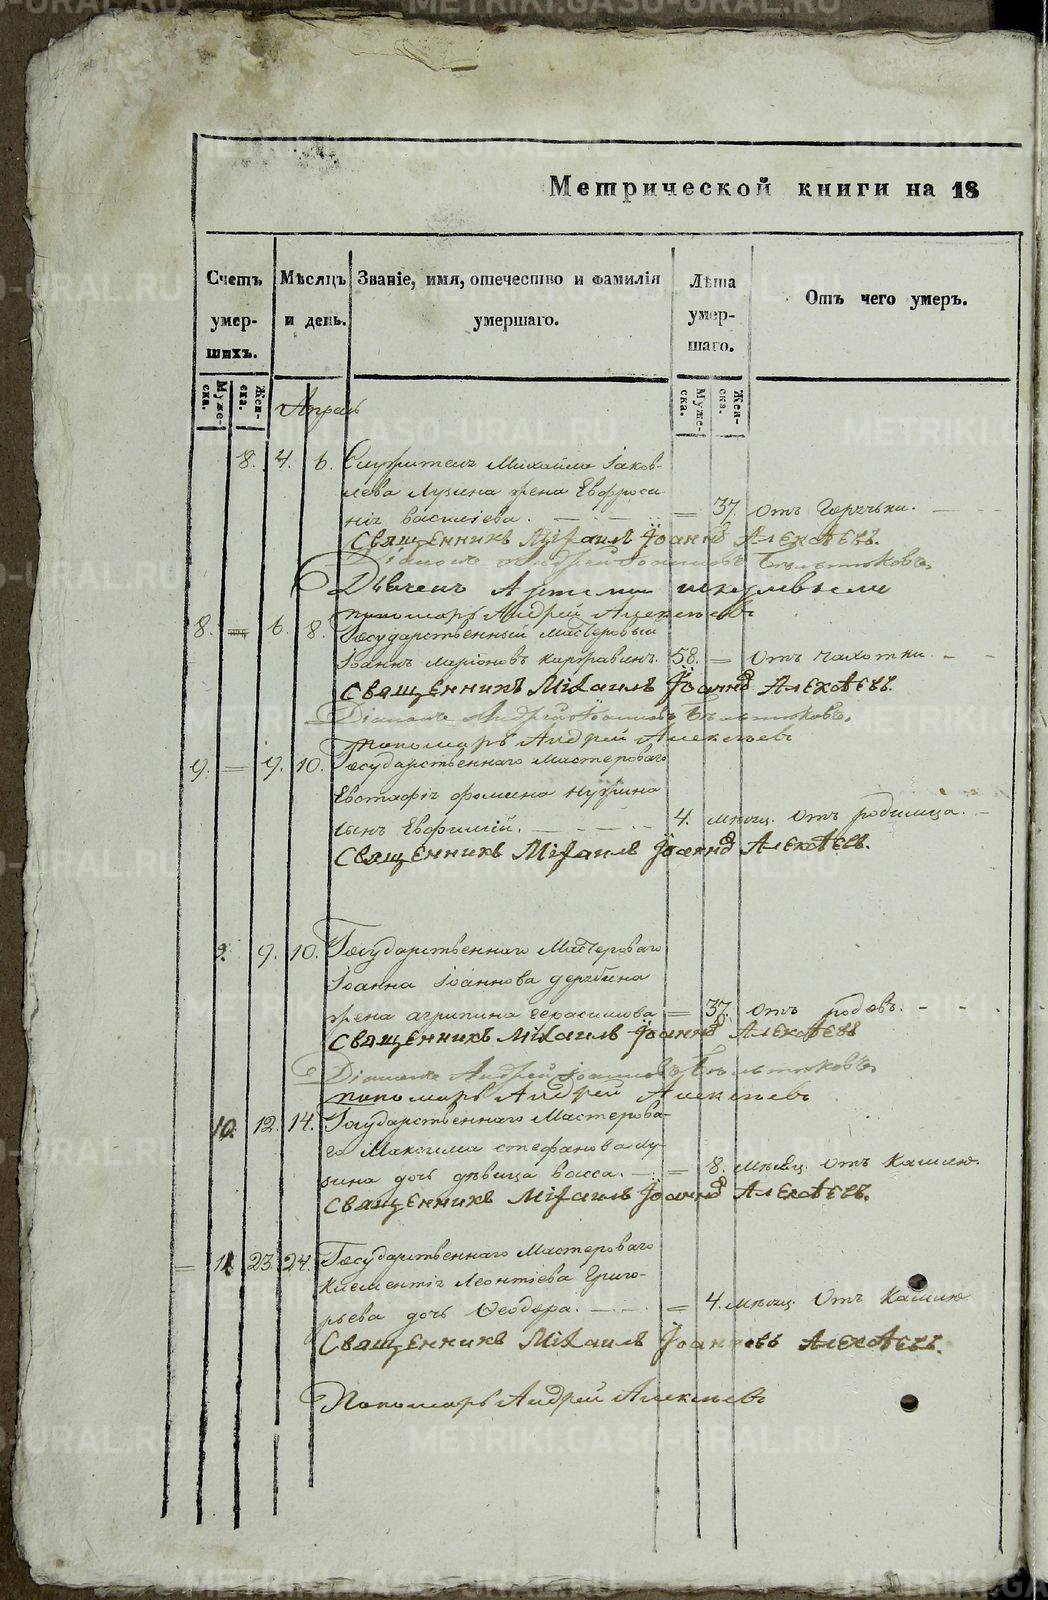 Метрической книги на 18
Счетъ умер-шихъ.
Мѣсяцъ и день.
Званіе, имя, отечество и фамилія умершаго.
Лѣта умер-шаго.
Отъ чего умеръ.
Муже-ска.
Жен-ска.
Муже-ска.
Жен-ска.
Апрель
8. 4. 6. Служителя Михайла Іаков-
лева Лузина жена Евфроси-
нія Василіева. = 37. отъ Горячьки.
Священникъ Міхаилъ Іоанновъ Алексѣевъ.
Діаконъ Андрей Іоанновъ
Дьячекъ
пономарь Андрей Алексѣевъ
8. = 6. 8. Государственный мастеровый
Іоаннъ Ларіоновъ 58. = Отъ чахотки
Священникъ Міхаилъ Іоанновъ Алексѣевъ.
Діаконъ Андрей Іоанновъ
пономарь Андрей Алексѣевъ
9. = 9. 10. Государственнаго мастероваго
Евстафія Фомина
сынъ Евфимій. 4. мѣсяц. Отъ родимца.
Священникъ Міхаилъ Іоанновъ Алексѣевъ.
9. 9. 10. Государственнаго Мастероваго
Іоанна Іоаннова Дерябина
жена Агрипина Герасимова = 37. отъ родовъ.
Священникъ Міхаилъ Іоанновъ Алексѣевъ
Діаконъ Андрей Іоанновъ
пономарь Андрей Алексѣевъ
10. 12. 14. Государственнаго Мастерова-
го Максима Стефанова Лу-
зина дочь дѣвица Васса. = 8. мѣсяц. Отъ Кашлю.
Священникъ Міхаилъ Іоанновъ Алексѣевъ.
= 11. 23. 24. Государственнаго Мастероваго
Климентія Леонтіева Григо-
рьева дочь Ѳеодора. = 4. мѣсяц. Отъ Кашлю
Священникъ Міхаилъ Іоанновъ Алексѣевъ.
Пономарь Андрей Алексѣевъ
METRIKI.GASO-URAL.RU